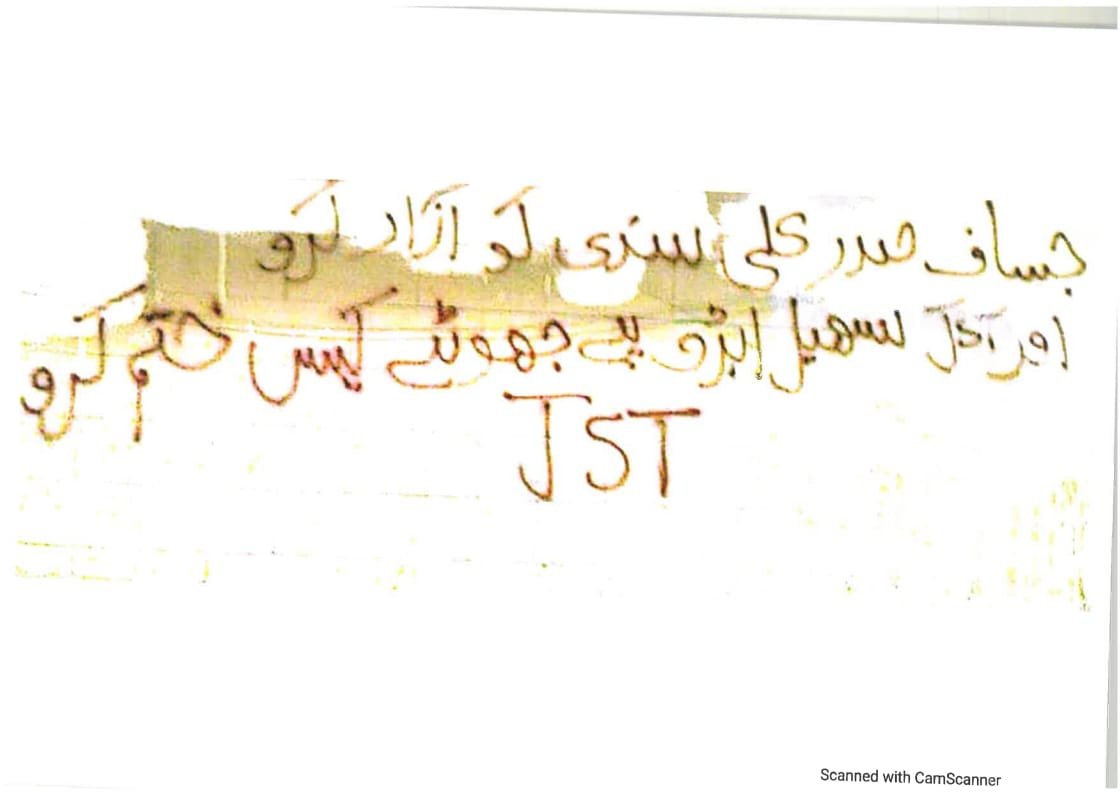 جساف صدر علی سندی کو ازاد کرو
اور آکاش سھیل ابڑو پے جھوٹے کیس ختم کرو
JST
Scanned with CamScanner